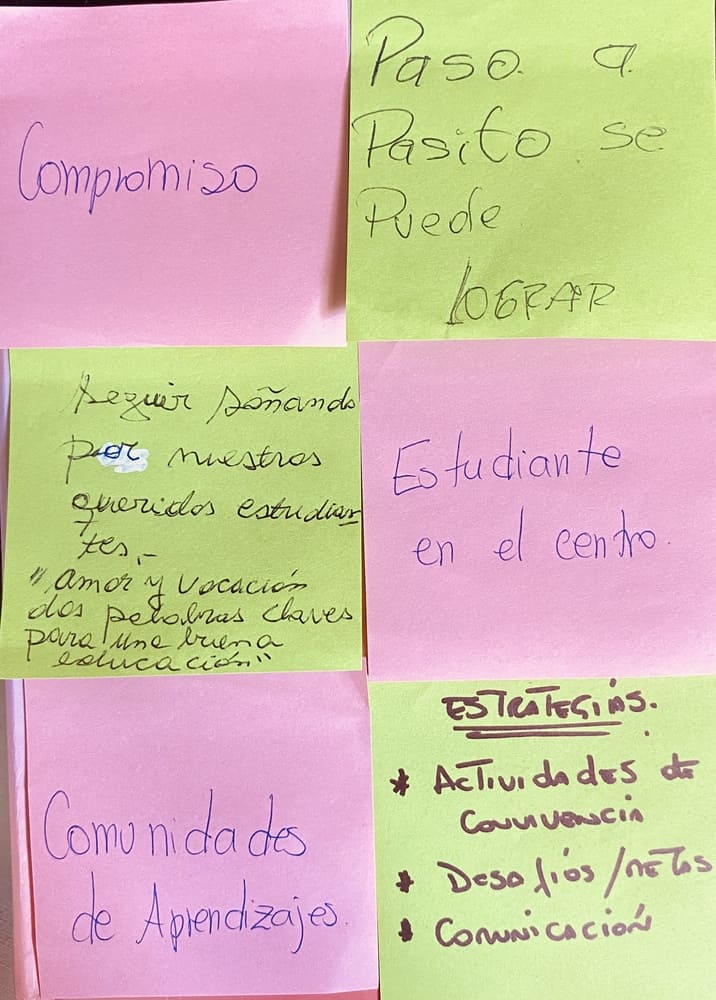 Compromiso
Paso a
Pasito se
Puede
lograr
Seguir soñando
por nuestros
queridos estudian
tes.-
"Amor y vocación
dos palabras claves
para una buena
educación"
Estudiante
en el centro.
Comunidades
de Aprendizajes.
ESTRATEGIAS.
* ACTIVIDADES de
CONVIVENCIA
* DESAFÍOS/METAS
* COMUNICACIÓN